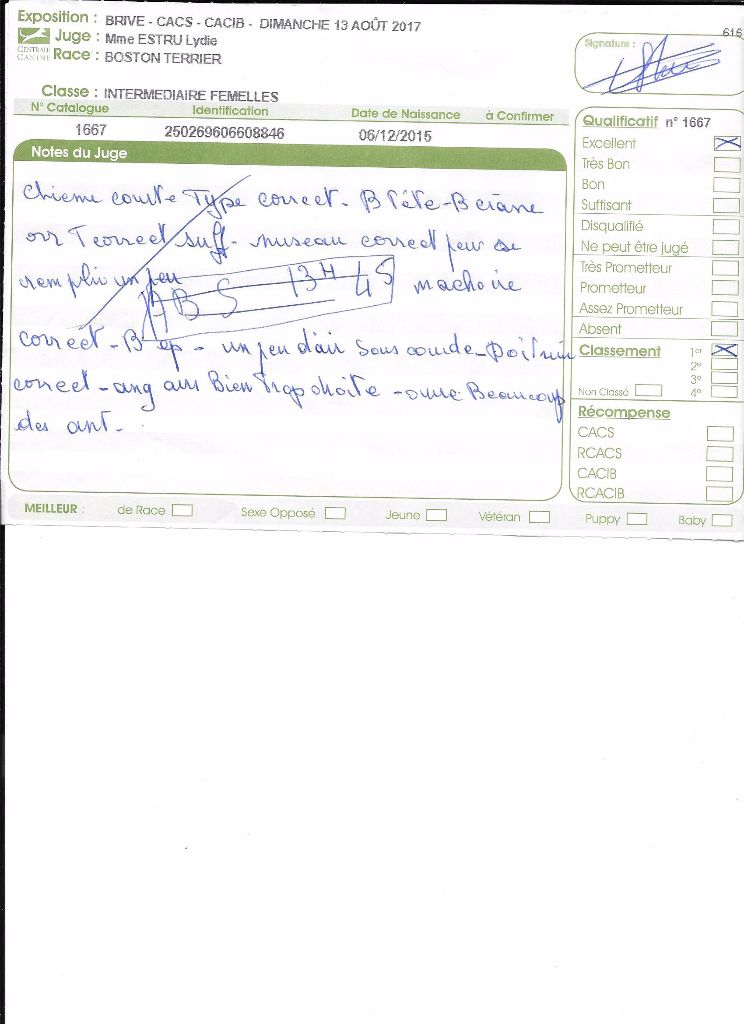 Exposition : BRIVE - CACS - CACIB - DIMANCHE 13 AOÛT 2017
616
CENTRALE CANINE
Juge : Mme ESTRU Lydie
Race : BOSTON TERRIER
Signature :
Classe : INTERMEDIAIRE FEMELLES
N° Catalogue Identification Date de Naissance à Confirmer
1667 250269606608846 06/12/2015
Notes du Juge
Chienne courte Type correct - B Tête - B crâne
orr T correct suff - museau correct peu se
remplir un peu
ABS 13H45 machoire
correct - B ep - un peu d'air sous coude - Poitrine
correct - ang arr Bien Trop droite - ouvre Beaucoup
des ant -
Qualificatif n° 1667
Excellent
Très Bon
Bon
Suffisant
Disqualifié
Ne peut être jugé
Très Prometteur
Prometteur
Assez Prometteur
Absent
Classement 1er
2e
3e
Non Classé 4e
Récompense
CACS
RCACS
CACIB
RCACIB
MEILLEUR : de Race Sexe Opposé Jeune Vétéran Puppy Baby